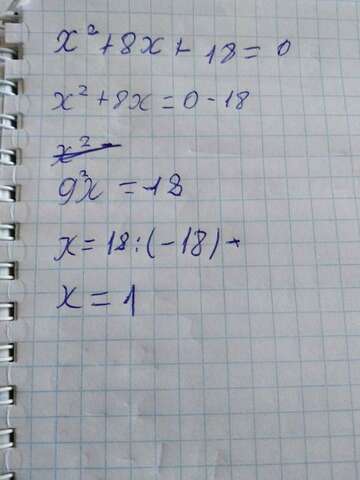 x² + 8x + 18 = 0
x² + 8x = 0 - 18
x² -
9²x = -18
x = 18 : (-18)
x = 1